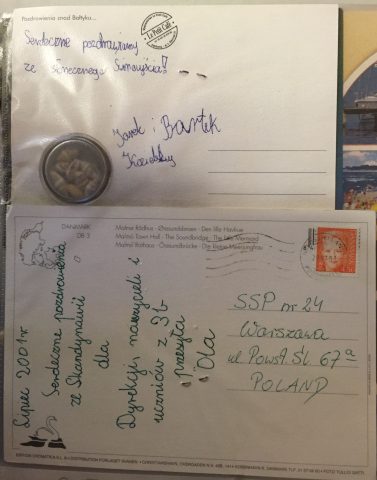 Pozdrowienia znad Bałtyku...
Le Petit Café
Serdecznie pozdrawiamy
ze słonecznego Świnoujścia!!
Jarek i Bartek
DANMARK
DB 3
Malmø Rådhus - Øresundsbroen - Den lille Havfrue
Malmö Town Hall - The Soundbridge - The Little Mermaid
Malmö Rathaus - Öresundbrücke - Die kleine Meerjungfrau
Lipiec 2001 r.
Serdeczne pozdrowienia
ze Skandynawii
dla
Dyrekcji, nauczycieli i
uczniów z 3b
przesyła
Ola
SSP nr 24
Warszawa
ul Powst. Śl. 67a
POLAND